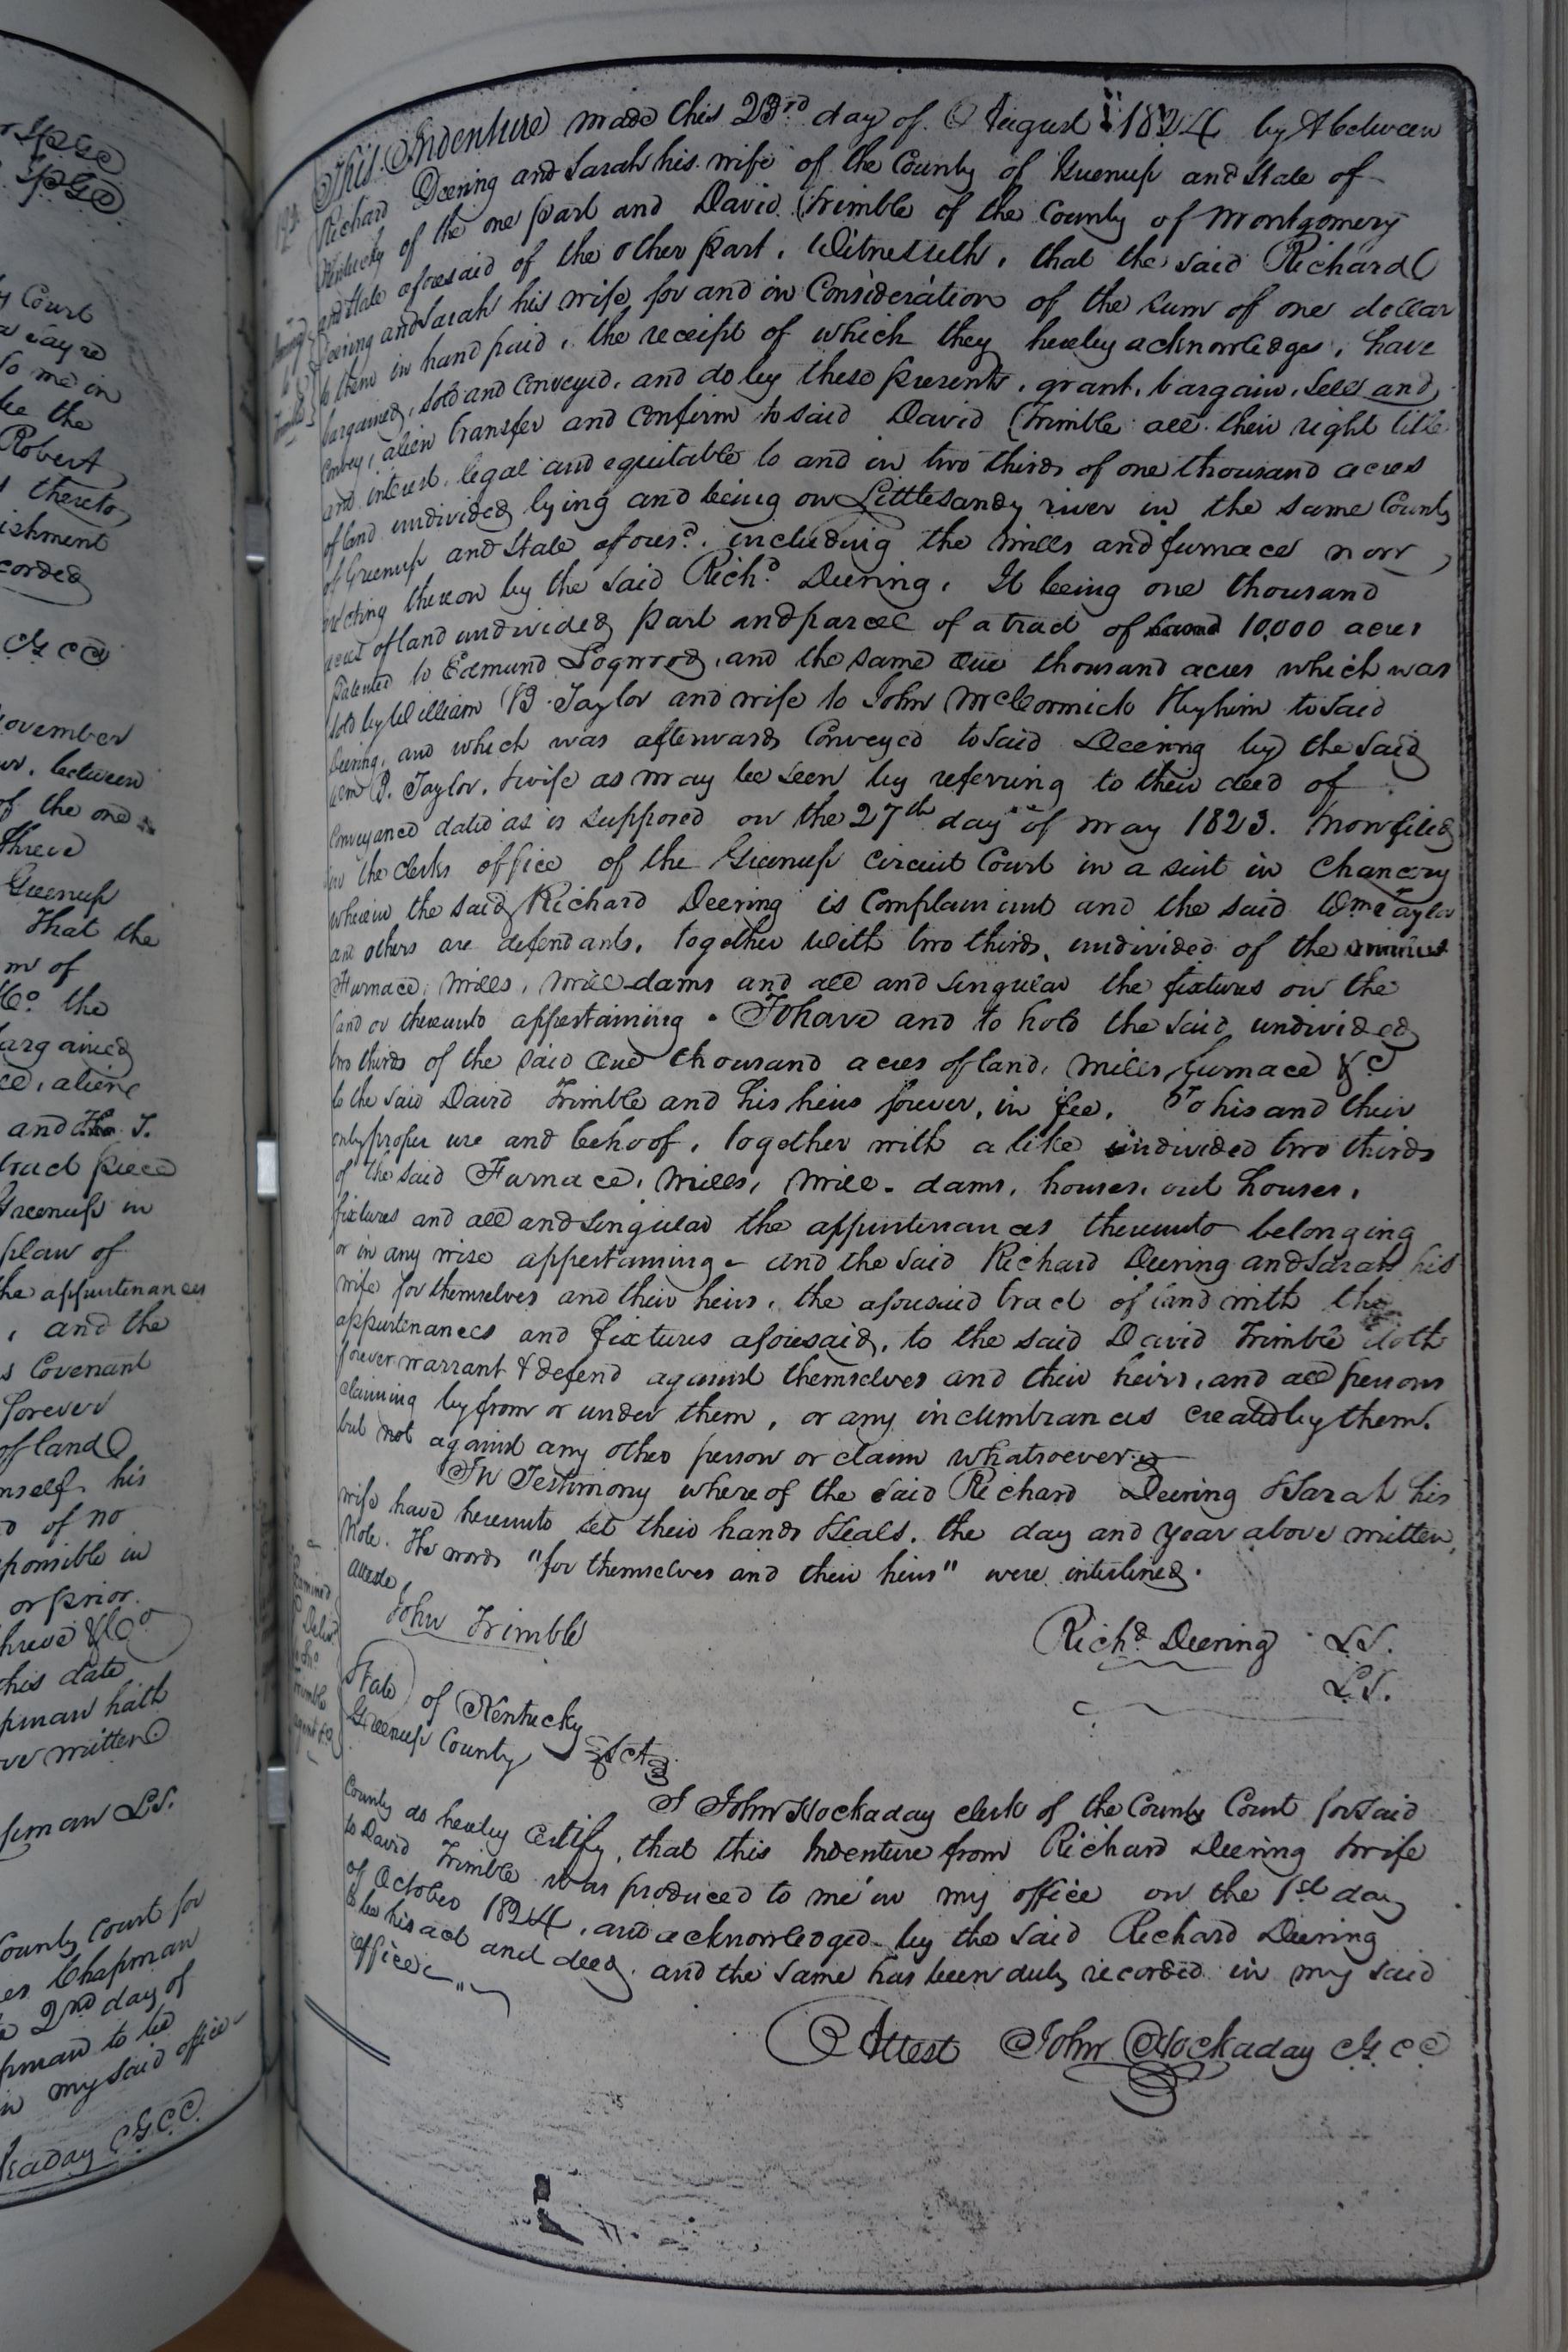 r SpGC
SpGC
y Court
a day re
to me in
be the
Robert
s thereto
ishment
corded
CGCC
November
ur, between
of the one
Shreve
Greenup
That the
m of
Co. the
bargained
ce, aliene
and Tho. J.
tract piece
Greenup in
plaw of
the appurtenances
, and the
s Covenant
forever
of land
mself, his
d of no
sponsible in
or prior
Shreve & Co
this date
pman hath
ve written
pman L.S.
County Court for
es Chapman
2nd day of
pman to be
in my said office
kaday CGCC
This Indenture made this 23rd day of August 1824 by & between
Richard Deering and Sarah his wife of the County of Greenup and State of
Kentucky of the one part and David Trimble of the County of Montgomery
and State aforesaid of the other part, Witnesseth, that the said Richard
Deering and Sarah his wife for and in Consideration of the sum of one dollar
to them in hand paid, the receipt of which they hereby acknowledge, have
bargained, sold and Conveyed, and do by these presents, grant, bargain, sell and
Convey, alien transfer and confirm to said David Trimble all their right title
and interest, legal and equitable to and in two thirds of one thousand acres
of land undivided lying and being on Little Sandy river in the same County
of Greenup and State afores.d, including the mills and furnace now
erecting thereon by the said Rich.d Deering, It being one thousand
acres of land undivided part and parcel of a tract of 10,000 acres
patented to Edmund Logwood, and the same One thousand acres which was
sold by William B. Taylor and wife to John McCormick & by him to said
Deering, and which was afterwards Conveyed to said Deering by the said
Wm B. Taylor, & wife as may be seen by referring to their deed of
Conveyance dated as is supposed on the 27th day of May 1823. now filed
in the clerks office of the Greenup circuit Court in a suit in Chancery
wherein the said Richard Deering is Complainant and the said Wm Taylor
and others are defendants, together with two thirds, undivided of the
Furnace, Mills, Mill-dams and all and singular the fixtures on the
land or thereunto appertaining. To have and to hold the said undivided
two thirds of the said One thousand acres of land, Mills, furnace &c
to the said David Trimble and his heirs forever, in fee. To his and their
only proper use and behoof, together with a like undivided two thirds
of the said Furnace, Mills, Mill-dams, houses, out houses,
fixtures and all and singular the appurtenances thereunto belonging
or in any wise appertaining - and the said Richard Deering and Sarah his
wife for themselves and their heirs, the aforesaid tract of land with the
appurtenances and fixtures aforesaid, to the said David Trimble doth
forever warrant & defend against themselves and their heirs, and all persons
claiming by from or under them, or any incumbrances created by them.
but not against any other person or claim whatsoever.
In Testimony whereof the said Richard Deering & Sarah his
wife have hereunto set their hands & Seals. the day and year above written,
Note. The words "for themselves and their heirs" were interlined.
Atteste,
John Trimble
Rich.d Deering L.S.
L.S.
State of Kentucky
Greenup County Sct
I John Hockaday clerk of the County Court for said
County do hereby Certify, that this Indenture from Richard Deering & wife
to David Trimble was produced to me in my office on the 1st day
of October 1824, and acknowledged by the said Richard Deering
to be his act and deed, and the same has been duly recorded in my said
office
Attest John Hockaday C.G.C.C